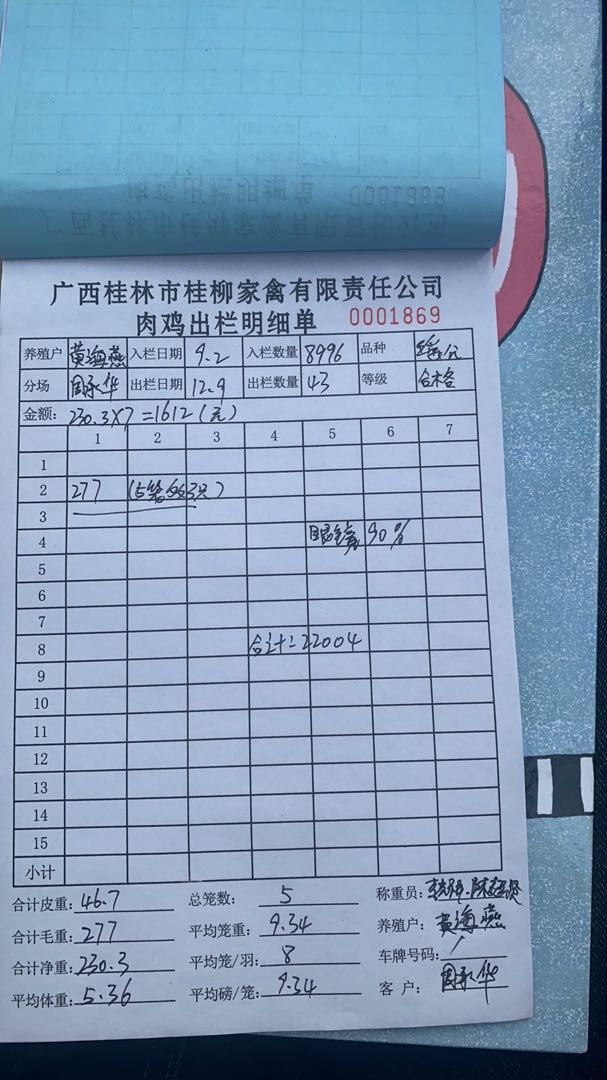 广西桂林市桂柳家禽有限责任公司
肉鸡出栏明细单 0001869
养殖户 黄海燕 入栏日期 9.2 入栏数量 8996 品种
分场 周承华 出栏日期 12.9 出栏数量 43 等级 合格
金额: 230.3×7=1612(元)
1 2 3 4 5 6 7
1
2 277 (5笼 只)
3
4 眼镜 90%
5
6
7
8 合计=22004
9
10
11
12
13
14
15
小计
合计皮重: 46.7 总笼数: 5 称重员:
合计毛重: 277 平均笼重: 9.34 养殖户: 黄海燕
合计净重: 230.3 平均笼/羽: 8 车牌号码: /
平均体重: 5.36 平均磅/笼: 9.34 客户: 周承华